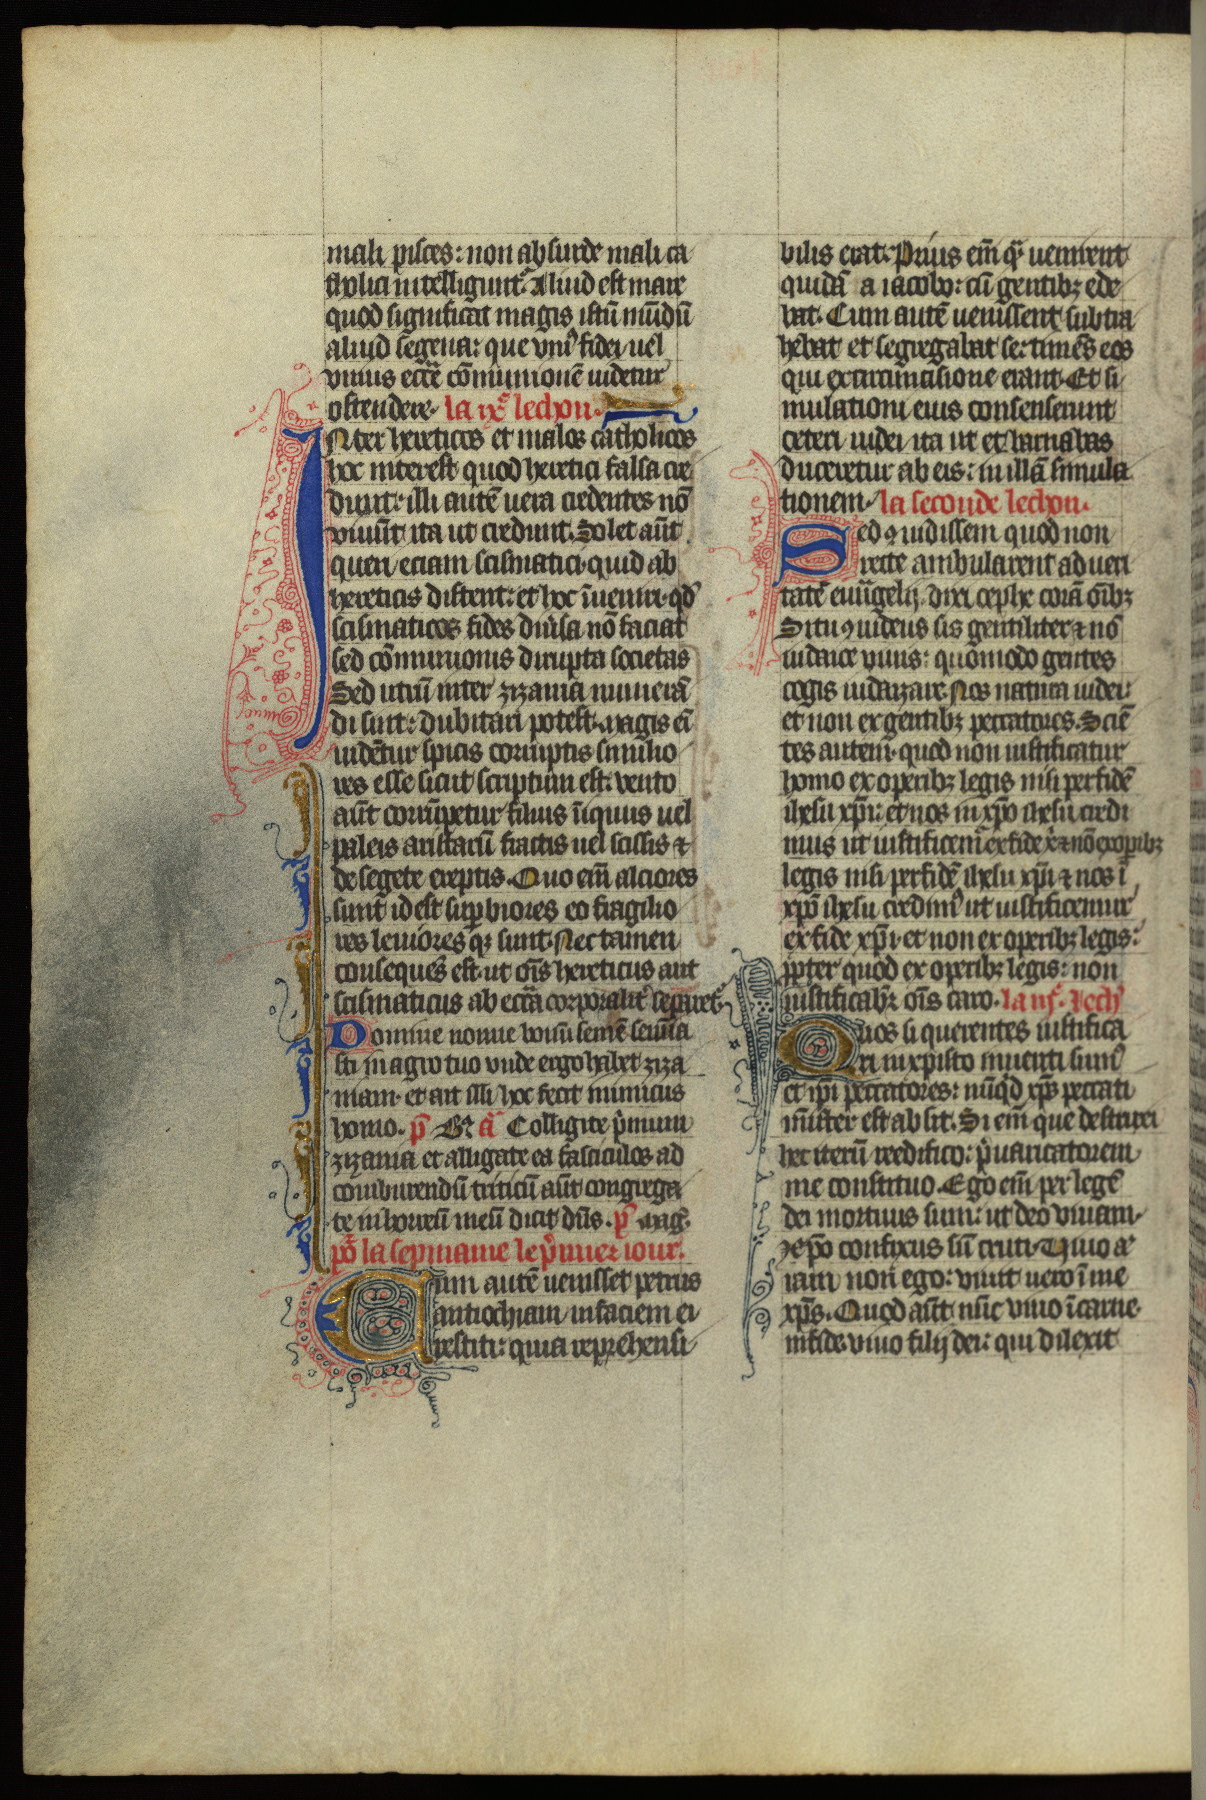 mali pisces: non absurde mali ca
tholici intelligunt᷑. Aliud est mare
quod significat magis istū mūdū
aliud segena: que vniꝰ fidei uel
vnius eccᷓe cōmunionē uidetur
ostendere. la ixᵉ lechon.
INter hereticos et malos catholicos
hoc interest quod heretici falsa cre
dunt: illi autē uera credentes nō
viuūt ita ut credunt. Solet aūt
queri eciam scismatici quid ab
hereticis distent: et hoc īueniri qđ
scismaticos fides diūsa nō faciat
sed cōmunionis dirupta societas
Sed utrū inter zizania numerā
di sint: dubitari potest. magis eī
uidētur spicis corruptis similio
res esse sicut scriptum est. vento
aūt corrūpetur filius īiquus uel
paleis aristarū fractis uel scissis ⁊
de segete ereptis. Quo eīm alciores
sunt id est suꝑbiores eo fragilio
res leuiores qꝫ sunt. Nec tamen
consequēs est. ut oīs hereticus aut
scismaticus ab eccᷓa corporalit᷑ seꝑaret᷑.
Domine nonne bonū semē semina
sti in agro tuo vnde ergo habet ziza
niam. et ait illi hoc fecit inimicus
homo. pͫ Bn̄ añ Colligite p̄mum
zizania et alligate ea fasciculos ad
comburendū triticū aūt congrega
te in horreū meū dicit dn̄s. pͫ maḡ.
pō la sepmaine le p̄mier iour.
Cum autē uenisset petrus
antiochiam in faciem ei
restiti: quia reprehensi
bilis erat. Prius eīm qͣ uenirent
quidā a iacobo: cū gentibꝫ ede
bat. Cum autē uenissent subtra
hebat et segregabat se: timēs eos
qui ex circumcisione erant. Et si
mulationi eius consenserunt
ceteri iudei ita ut et barnabas
duceretur ab eis: in illā simula
tionem. la seconde lechon.
Sed ꝯ uidissem quod non
recte ambularent ad ueri
tatē euūgelij. dixi cephe corā oībꝫ
Si tu ꝯ iudeus sis gentiliter ⁊ nō
iudaice viuis: quomodo gentes
cogis iudaizare. Nos natura iudei:
et non ex gentibꝫ peccatores. Sciē
tes autem. quod non iustificatur
homo ex operibꝫ legis nisi per fidē
ihesu xp̄i: et nos in xp̄o ihesu credi
mus ut iustificem᷑ ex fide x̄ ⁊ nō ex oꝑibꝫ
legis nisi per fidē ihesu xp̄i ⁊ nos ī
xp̄o ihesu credimꝰ ut iustificemur
ex fide xp̄i. et non ex operibꝫ legis:
ꝓpter quod ex operibꝫ legis: non
iustificabr̄ oīs caro. la iijᵉ. lechꝰ
Quos si querentes iustifica
ri in xpisto inuenti sumꝰ
et ip̄i peccatores: nūqͥd xp̄s peccati
mīster est absit. Si eīm que destruxi
hec iterū reedifico: p̄uaricatorem
me constituo. Ego eīm per legē
dei mortuus sum: ut deo viuam.
xp̄o confixus sū cruci. Viuo aū
iam non ego: viuit uero ī me
xp̄s. Quod aūt nūc viuo ī carne.
in fide viuo filij dei: qui dilexit